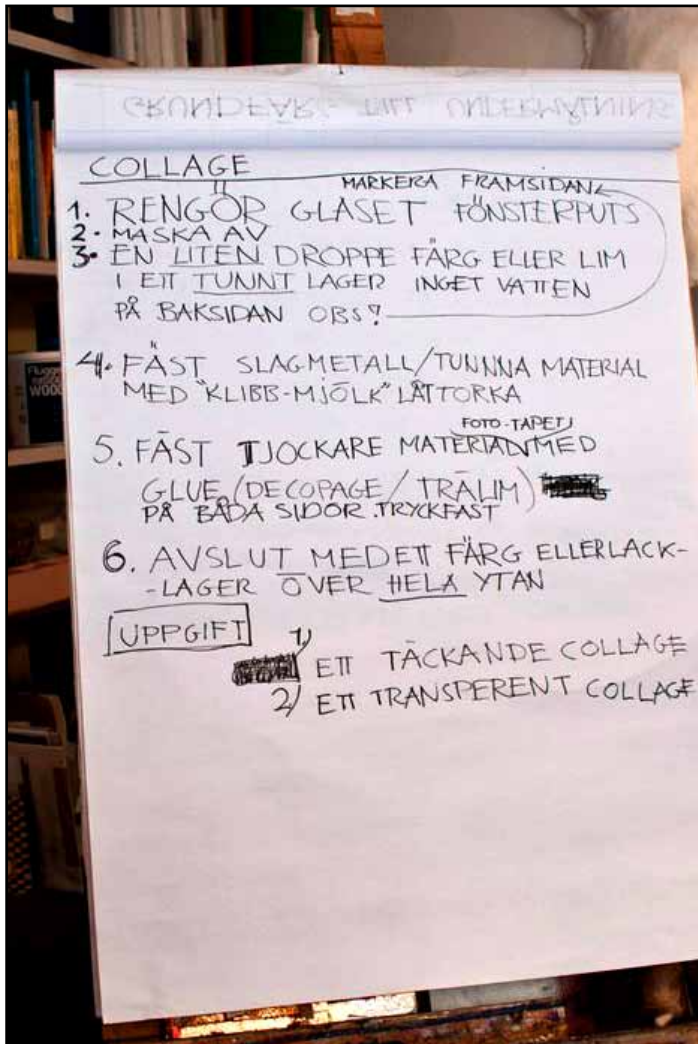 GRUNDFÄRG TILL UNDERMÅLNING
COLLAGE
MARKERA FRAMSIDAN
1. RENGÖR GLASET FÖNSTERPUTS
2. MASKA AV
3. EN LITEN DROPPE FÄRG ELLER LIM
I ETT TUNNT LAGER INGET VATTEN
PÅ BAKSIDAN OBS?
4. FÄST SLAGMETALL/TUNNNA MATERIAL
MED "KLIBB-MJÖLK" LÅTTORKA
FOTO-TAPET
5. FÄST TJOCKARE MATERIAL MED
GLUE (DECOPAGE/TRÄLIM)
PÅ BÅDA SIDOR. TRYCKFAST
6. AVSLUT MED ETT FÄRG ELLER LACK-
-LAGER ÖVER HELA YTAN
UPPGIFT
1) ETT TÄCKANDE COLLAGE
2) ETT TRANSPERENT COLLAGE